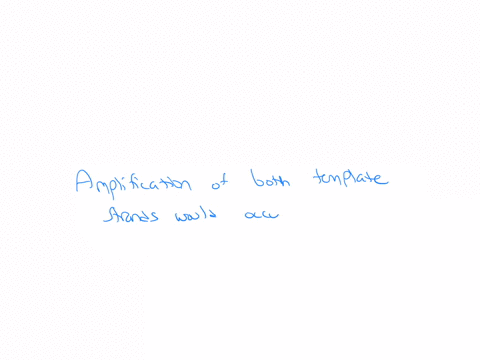 Amplification of both template
strands would occ